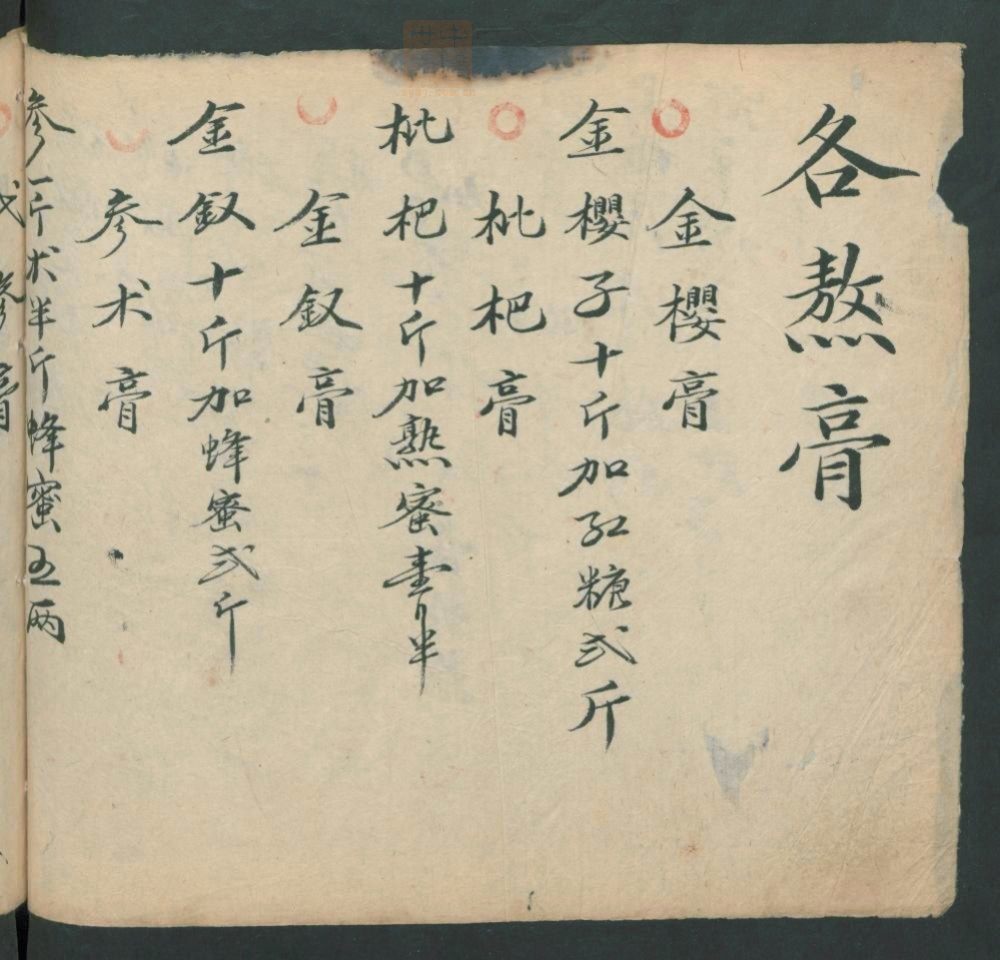 各熬膏
金櫻膏
金櫻子十斤加紅糖弍斤
枇杷膏
枇杷十斤加熟蜜壹斤半
金釵膏
金釵十斤加蜂蜜弍斤
參朮膏
參一斤朮半斤蜂蜜五兩